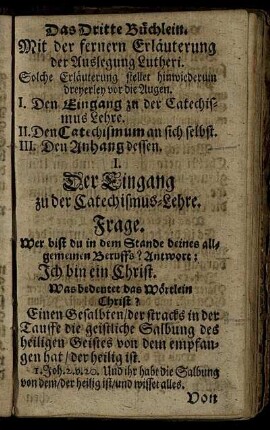 Das Dritte Büchlein.
Mit der fernern Erläuterung
der Auslegung Lutheri.
Solche Erläuterung stellet hinwiederum
dreyerley vor die Augen.
I. Den Eingang zu der Catechis-
mus Lehre.
II. Den Catechismum an sich selbst.
III. Den Anhang dessen.
I.
Der Eingang
zu der Catechismus-Lehre.
Frage.
Wer bist du in dem Stande deines all-
gemeinen Beruffs? Antwort:
Ich bin ein Christ.
Was bedeutet das Wörtlein
Christ?
Einen Gesalbten/der stracks in der
Tauffe die geistliche Salbung des
heiligen Geistes von dem empfan-
gen hat/der heilig ist.
1. Joh. 2. v. 20. Und ihr habt die Salbung
von dem/der heilig ist/und wisset alles.
Von